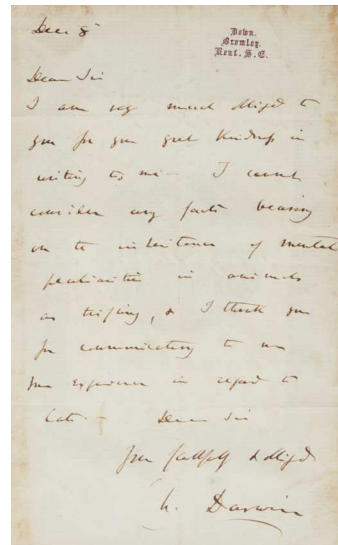 Dec 8
Down.
Bromley.
Kent. S.E.
Dear Sir
I am very much obliged to
you for your great kindness in
writing to me — I cannot
consider any facts bearing
on the inheritance of mental
peculiarities in animals
as trifling, & I thank you
for communicating to me
your experience in regard to
cats. — Dear Sir
Yours faithfully & obliged
Ch. Darwin